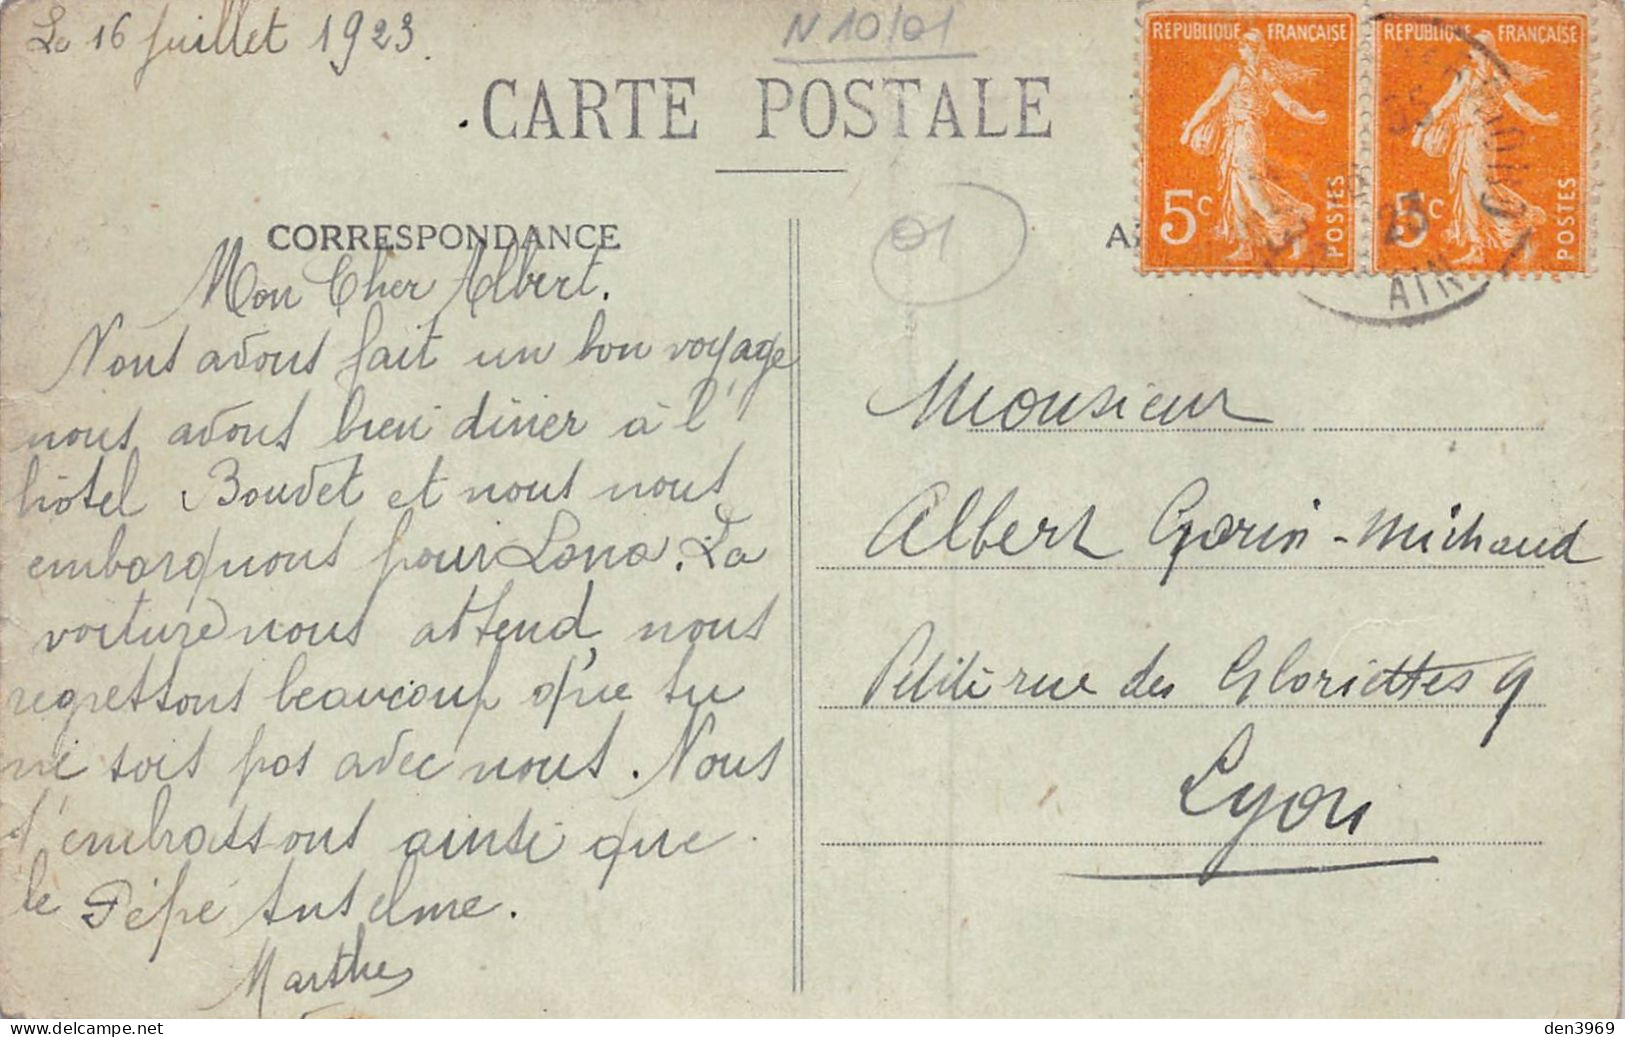 Le 16 Juillet 1923.
N 10/01
CARTE POSTALE
REPUBLIQUE FRANÇAISE
5c
POSTES
REPUBLIQUE FRANÇAISE
5c
POSTES
23
AIN
01
CORRESPONDANCE
Mon Cher Albert.
Nous avons fait un bon voyage
nous avons bien dîner à l'
hôtel Boudet et nous nous
embarquons pour . La
voiture nous attend, nous
regrettons beaucoup que tu
ne sois pas avec nous. Nous
t'embrassons ainsi que
le Pépé Anselme.
Marthe
Monsieur
Albert Gorin-Michaud
Petite rue des Gloriettes 9
Lyon
den3969